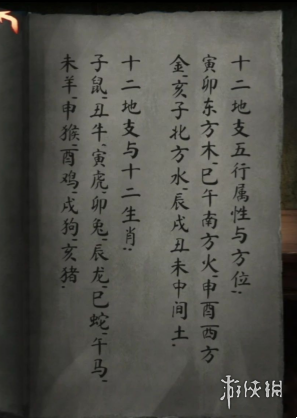 十二地支五行属性与方位：
寅卯东方木、巳午南方火、申酉西方
金、亥子北方水、辰戌丑未中间土。
十二地支与十二生肖：
子鼠、丑牛、寅虎、卯兔、辰龙、巳蛇、午马、
未羊、申猴、酉鸡、戌狗、亥猪。
游侠网